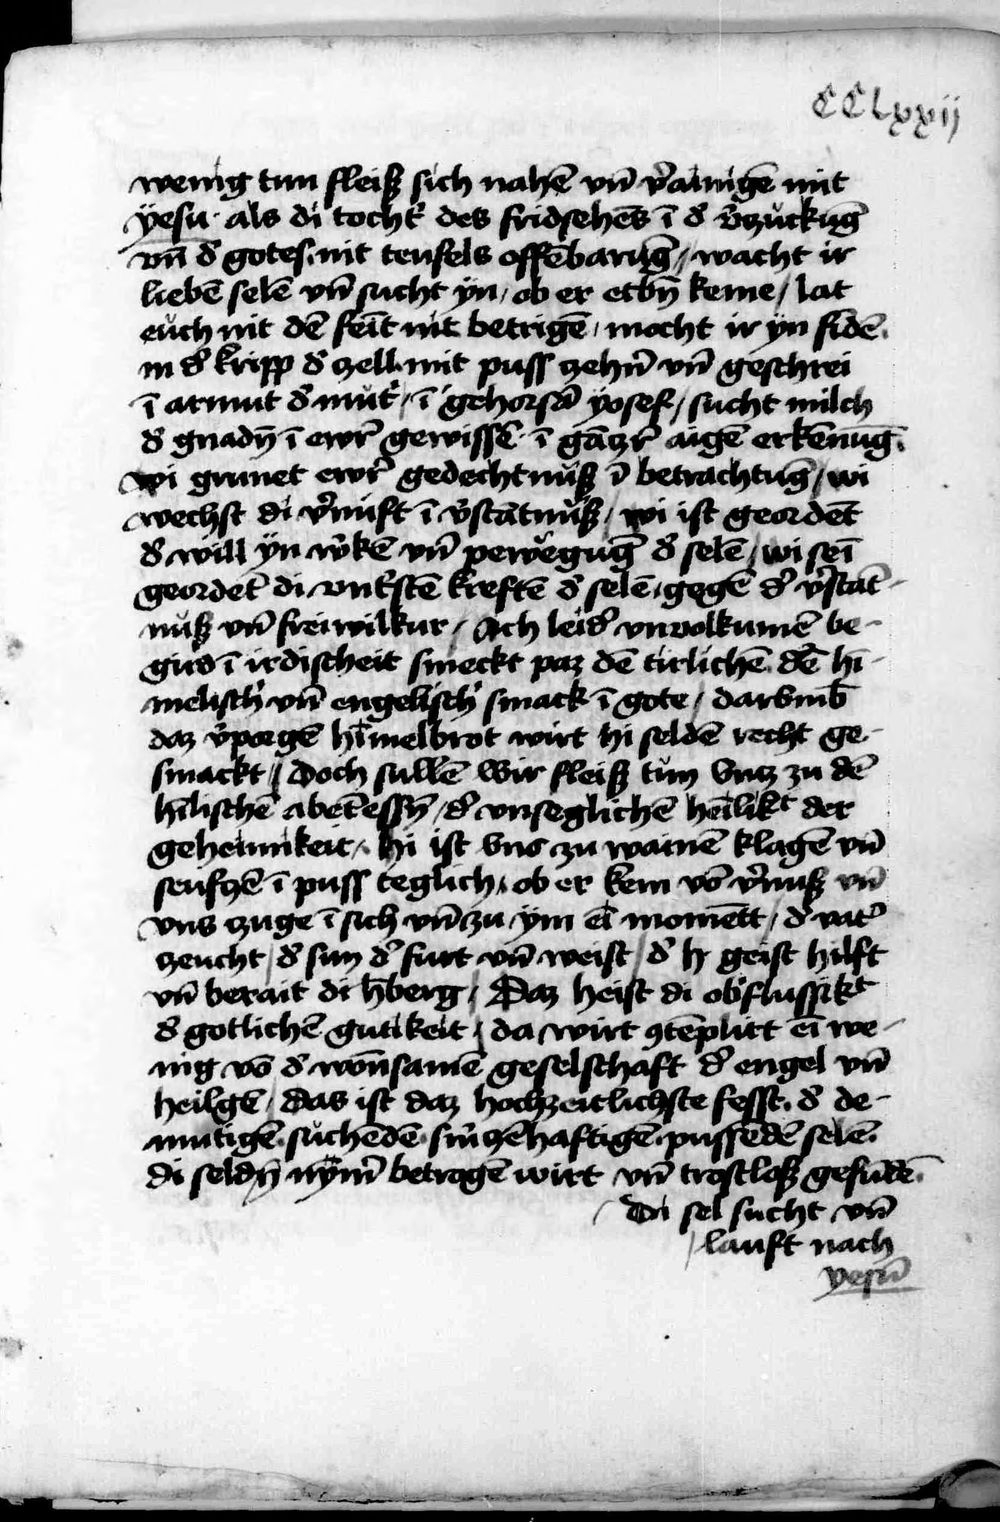 CCLxxij
wenig tun fleiß sich nahē vn̄ v̾ainigē mit
ÿesu · als di tocht̾ des fridsehēs ī d̾ v̾zückūg
vn̄ d̾ gotes nit teufels offēbarūg / wacht ir
liebē selē vn̄ sucht ÿn / ob er etbn̄ keme / lat
eüch nit dē feīt nit betrigē / mocht ir ÿn fidē
in d̾ kripp d̾ zell mit puss zehn̄ vn̄ geschrei
ī armut d̾ mut̾ / ī gehorsā yosef / sucht milch
d̾ gnadn̄ ī ewr̾ gewissē ī gātzr̾ aigē erkēnūg
wi grunet ewr̾ gedechtnüß ī betrachtūg / wi
wechst di v̾nuft ī v̾stātnüß / wi ist geordēt
d̾ will ÿn w̾kē vn̄ pewegūg d̾ selē / wi seī
geordet di vnt̾stē kreftē d̾ selē / gegē d̾ v̾stāt-
nüß vn̄ freiwilkur / Ach leid̾ vnuolkumē be-
gird ī irdischeit smeckt paz dē tirlichē dē hī-
melisch̾ vn̄ engelisch̾ smack ī gote / darūmb
daz v̾porgē hīmelbrot wirt hi seldē recht ge-
smackt / Doch sullē wir fleiß tün vntz zu dē
hīlischē abētessn̄ / d̾ vnseglichē heīlikt der
geheimikeit / hi ist vns zu wainē klagē vn̄
seufzē ī puss teglich / ob er kem vō v̾nuß vn̄
vns zuge ī sich vn̄ zu ÿm eī momētt / d̾ vat̾
zeucht / d̾ sun d̾ furt vn̄ weist / d̾ h geist hilft
vn̄ berait di h̾berg / Daz heist di ob̾flussikt
d̾ gotlichē gutikeit / da wirt 9tēplirt eī we-
nig vō d̾ wōnsamē geselschaft d̾ engel vn̄
heilgē / das ist daz hochzeitlichste fesst d̾ de-
mutigē süchēdē smerzēhaftigē pussēdē selē
di seldn̄ nÿm̄ betrogē wirt vn̄ trostloß gefūdē
Di sel sucht vn̄
lauft nach
yesū